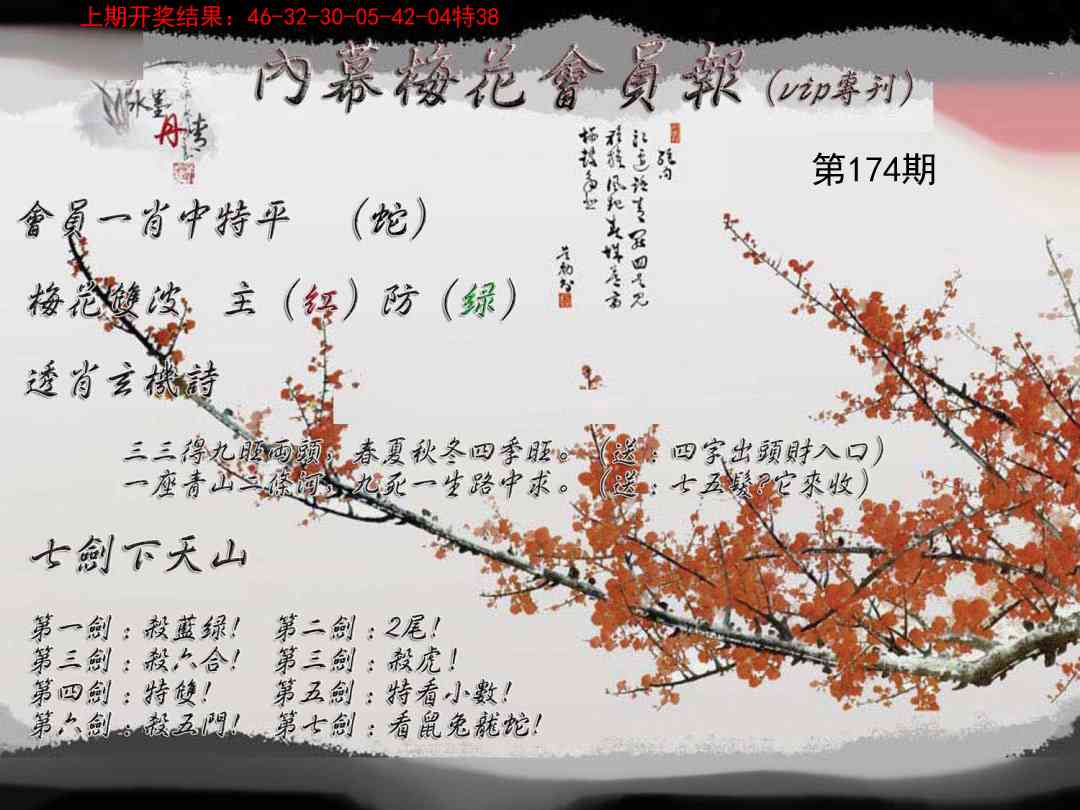 上期开奖结果：46-32-30-05-42-04特38
內幕梅花會員報（vip專刊）
水墨丹青
第174期
會員一肖中特平 （蛇）
梅花雙波 主（红）防（绿）
透肖玄機詩
三三得九旺兩頭，春夏秋冬四季旺。（送：四字出頭財入口）
一座青山二條河，九死一生路中求。（送：七五髮?它來收）
七劍下天山
第一劍：殺藍绿! 第二劍：2尾!
第三劍：殺六合! 第三劍：殺虎!
第四劍：特雙! 第五劍：特看小數!
第六劍：殺五門! 第七劍：看鼠兔龍蛇!